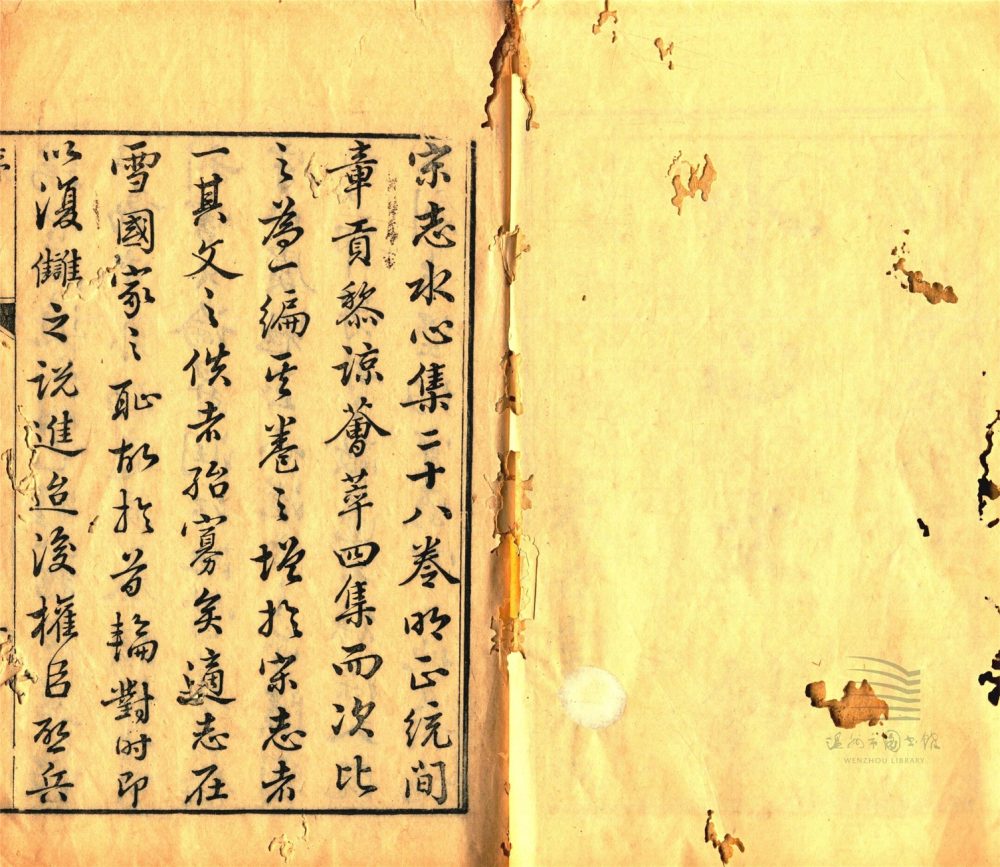 宋志水心集二十八卷明正統間
章貢黎諒薈萃四集而次比
之為一編其卷之增於宋志者
一其文之佚者殆寡矣適志在
雪國家之恥故於首輪對時即
以復讎之説進迨後權臣啓兵
溫州市圖書館
WENZHOU LIBRARY